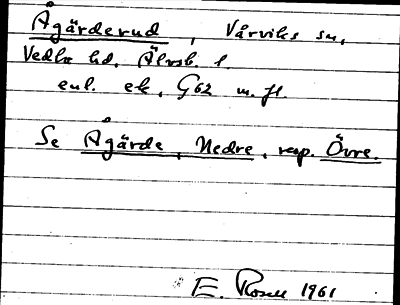 Ågärderud, Vårviks sn,
Vedbo hd, Älvsb. l.
enl. ek, G62 m. fl.
Se Ågärde, Nedre, resp. Övre.
E. Rosell 1961